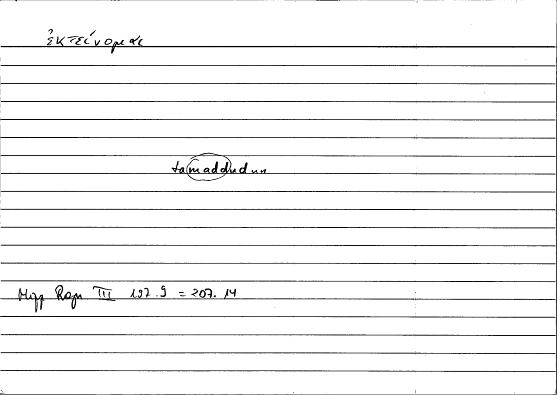 ἐκτείνομαι
tamaddudun
Hipp Rgm III 197.9 = 207.14